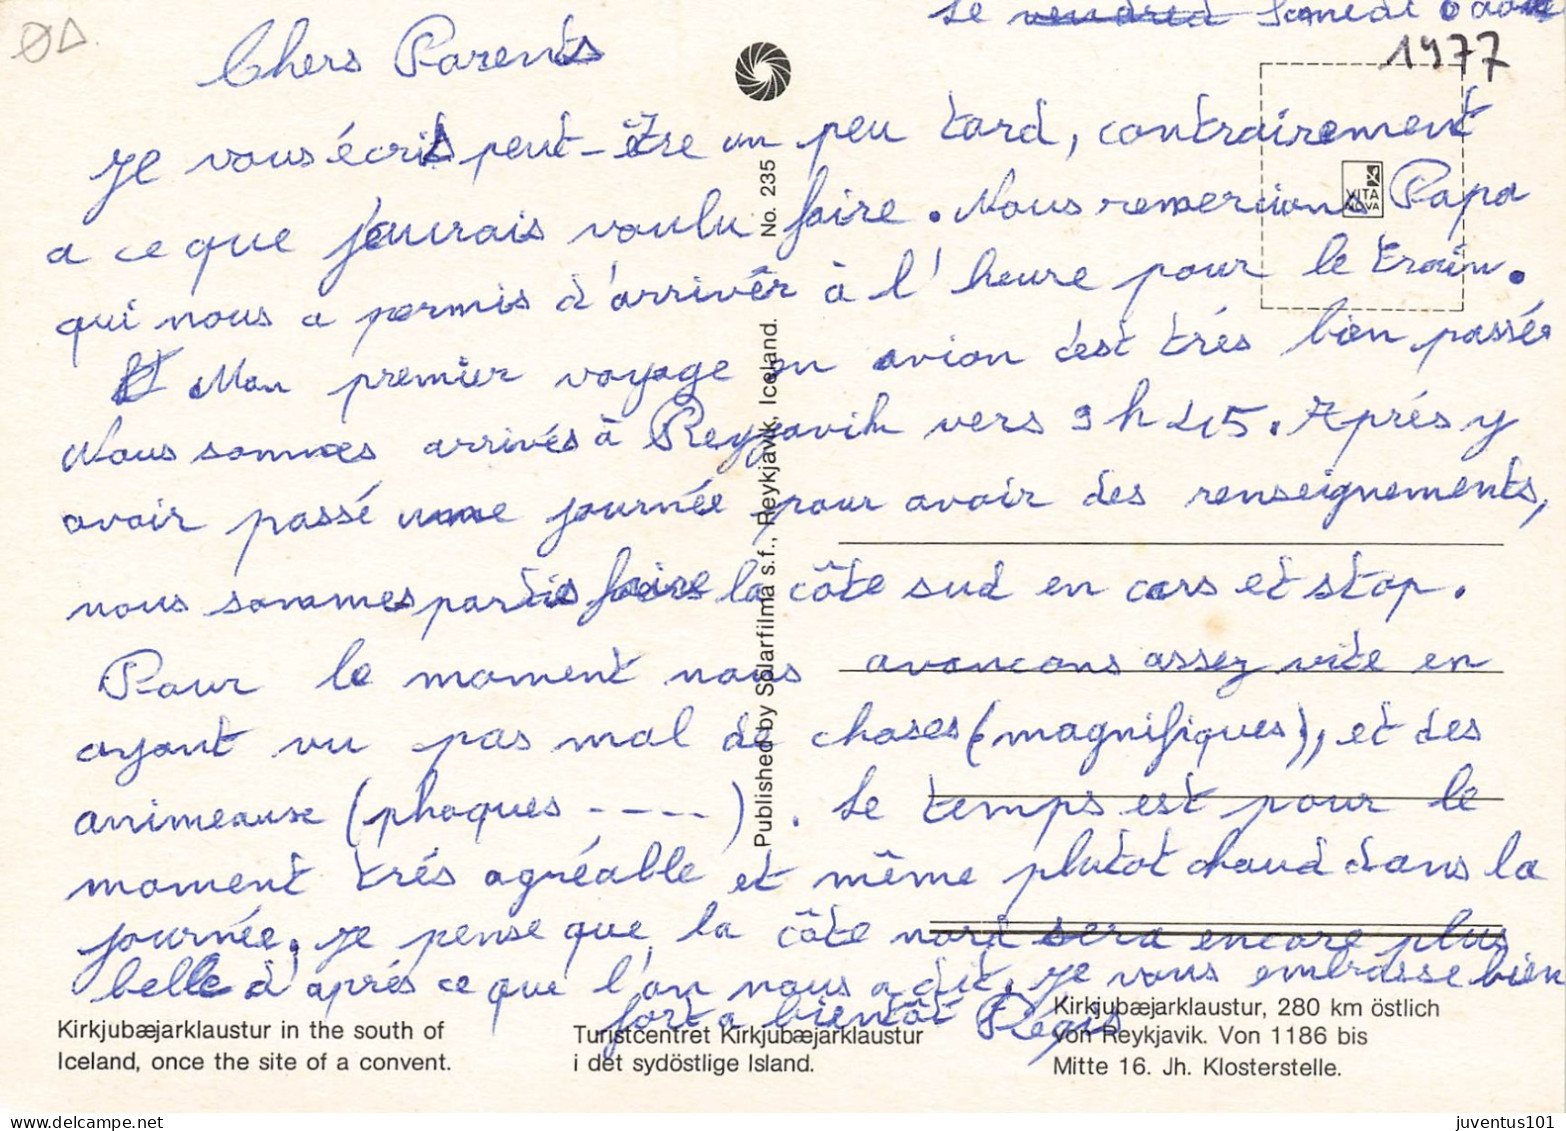 Le vendredi Samedi 6 août
1977
Chers Parents
Je vous écris peut-être un peu tard, contrairement
a ce que j'aurais voulu faire. Nous remercions Papa
qui nous a permis d'arrivêr à l'heure pour le train.
Mon premier voyage en avion c'est trés bien passés
Nous sommes arrivés à Reyjavik vers 9h45. Aprés y
avoir passé une journée pour avoir des renseignements,
nous sommes partis faire la côte sud en cars et stop.
Pour le moment nous avancons assez vite en
ayant vu pas mal de choses (magnifiques), et des
animeaux (phoques ----). Le temps est pour le
moment trés agréable et même plutot chaud dans la
journée. Je pense que la côte nord sera encore plus
belle d'aprés ce que l'on nous a dit. Je vous embrasse bien
fort a bientôt Régis
No. 235
Published by Solarfilma s.f., Reykjavik, Iceland.
VITA
NOVA
Kirkjubæjarklaustur in the south of
Iceland, once the site of a convent.
Turistcentret Kirkjubæjarklaustur
i det sydöstlige Island.
Kirkjubæjarklaustur, 280 km östlich
von Reykjavik. Von 1186 bis
Mitte 16. Jh. Klosterstelle.
juventus101